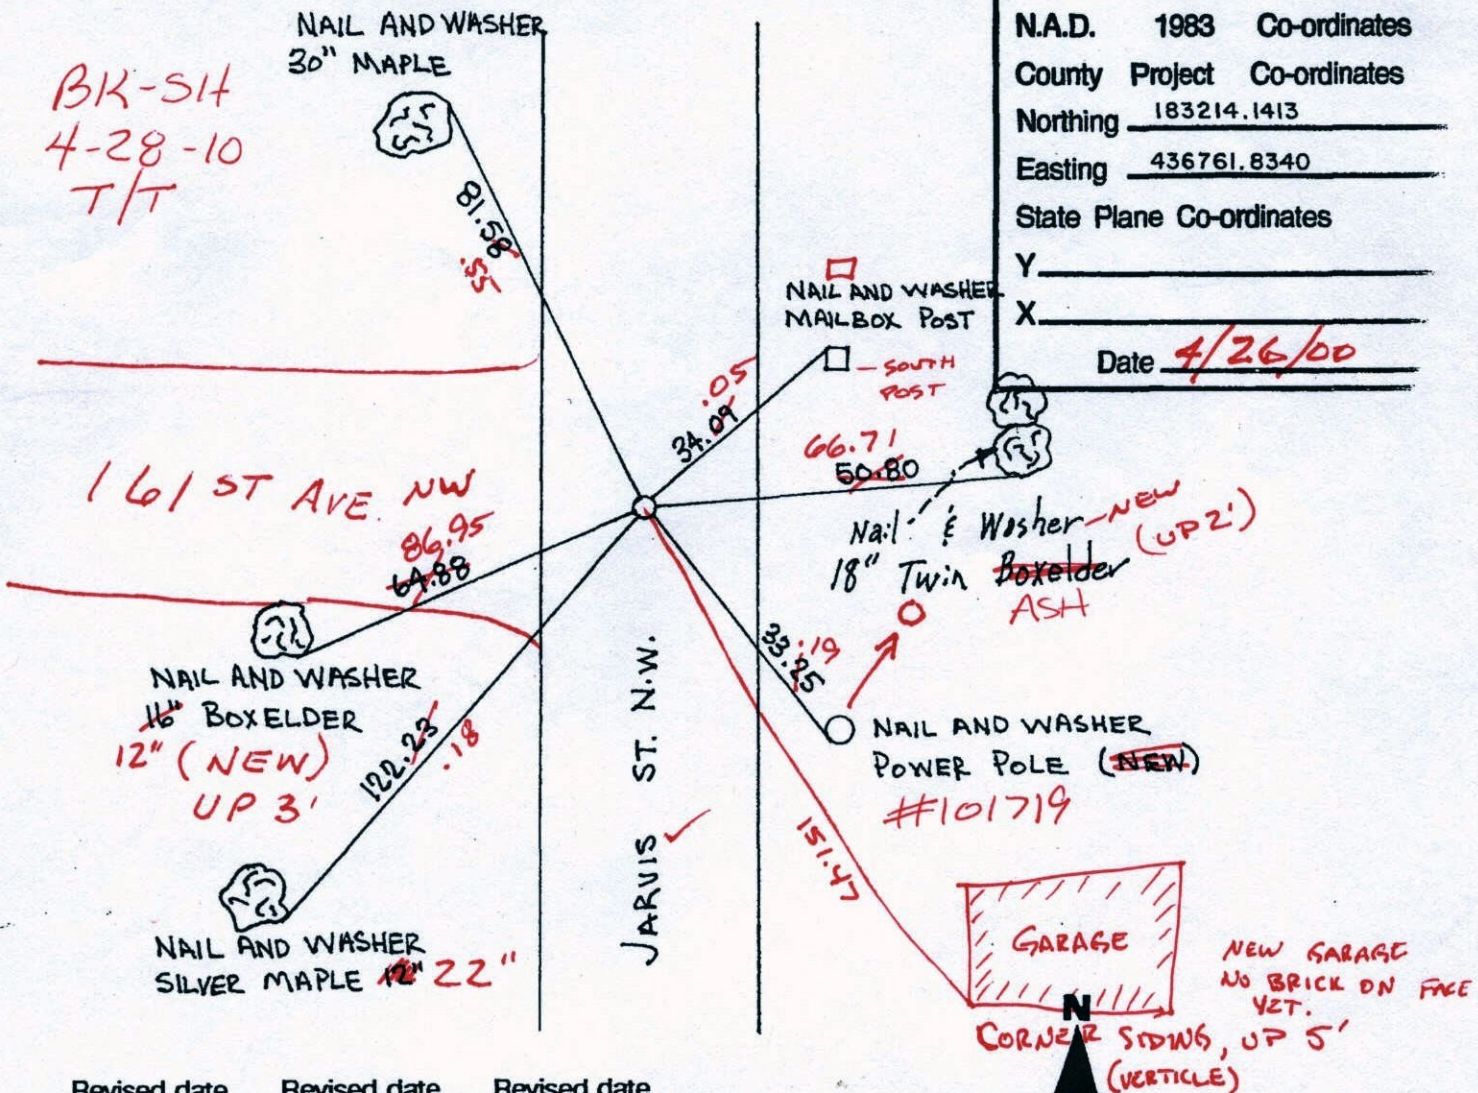 NAIL AND WASHER
30" MAPLE
BK-SH
4-28-10
T/T
N.A.D. 1983 Co-ordinates
County Project Co-ordinates
Northing 183214.1413
Easting 436761.8340
State Plane Co-ordinates
Y
X
Date 4/26/00
81.58
.55
NAIL AND WASHER
MAILBOX POST
SOUTH
POST
34.09
.05
66.71
50.80
161 ST AVE. NW
86.95
64.88
Nail & Washer NEW
(UP 2')
18" Twin Boxelder
ASH
33.25
.19
NAIL AND WASHER
16" BOXELDER
12" (NEW)
UP 3'
122.23
.18
NAIL AND WASHER
POWER POLE (NEW)
#101719
JARVIS ST. N.W.
151.47
NAIL AND WASHER
SILVER MAPLE 12" 22"
GARAGE
NEW GARAGE
NO BRICK ON FACE
YET.
N
CORNER SIDING, UP 5'
(VERTICLE)
Revised date Revised date Revised date